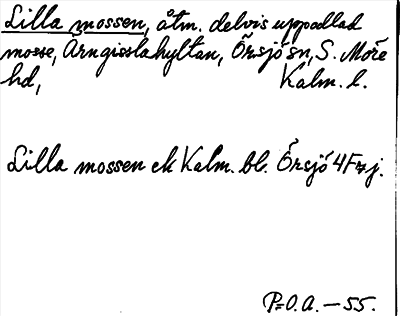 Lilla mossen, åtm. delvis uppodlad
mosse, Arngisslahyltan, Örsjö sn, S. Möre
hd, Kalm. l.
Lilla mossen ek Kalm. bl. Örsjö 4F7j.
P=O.A. - 55.